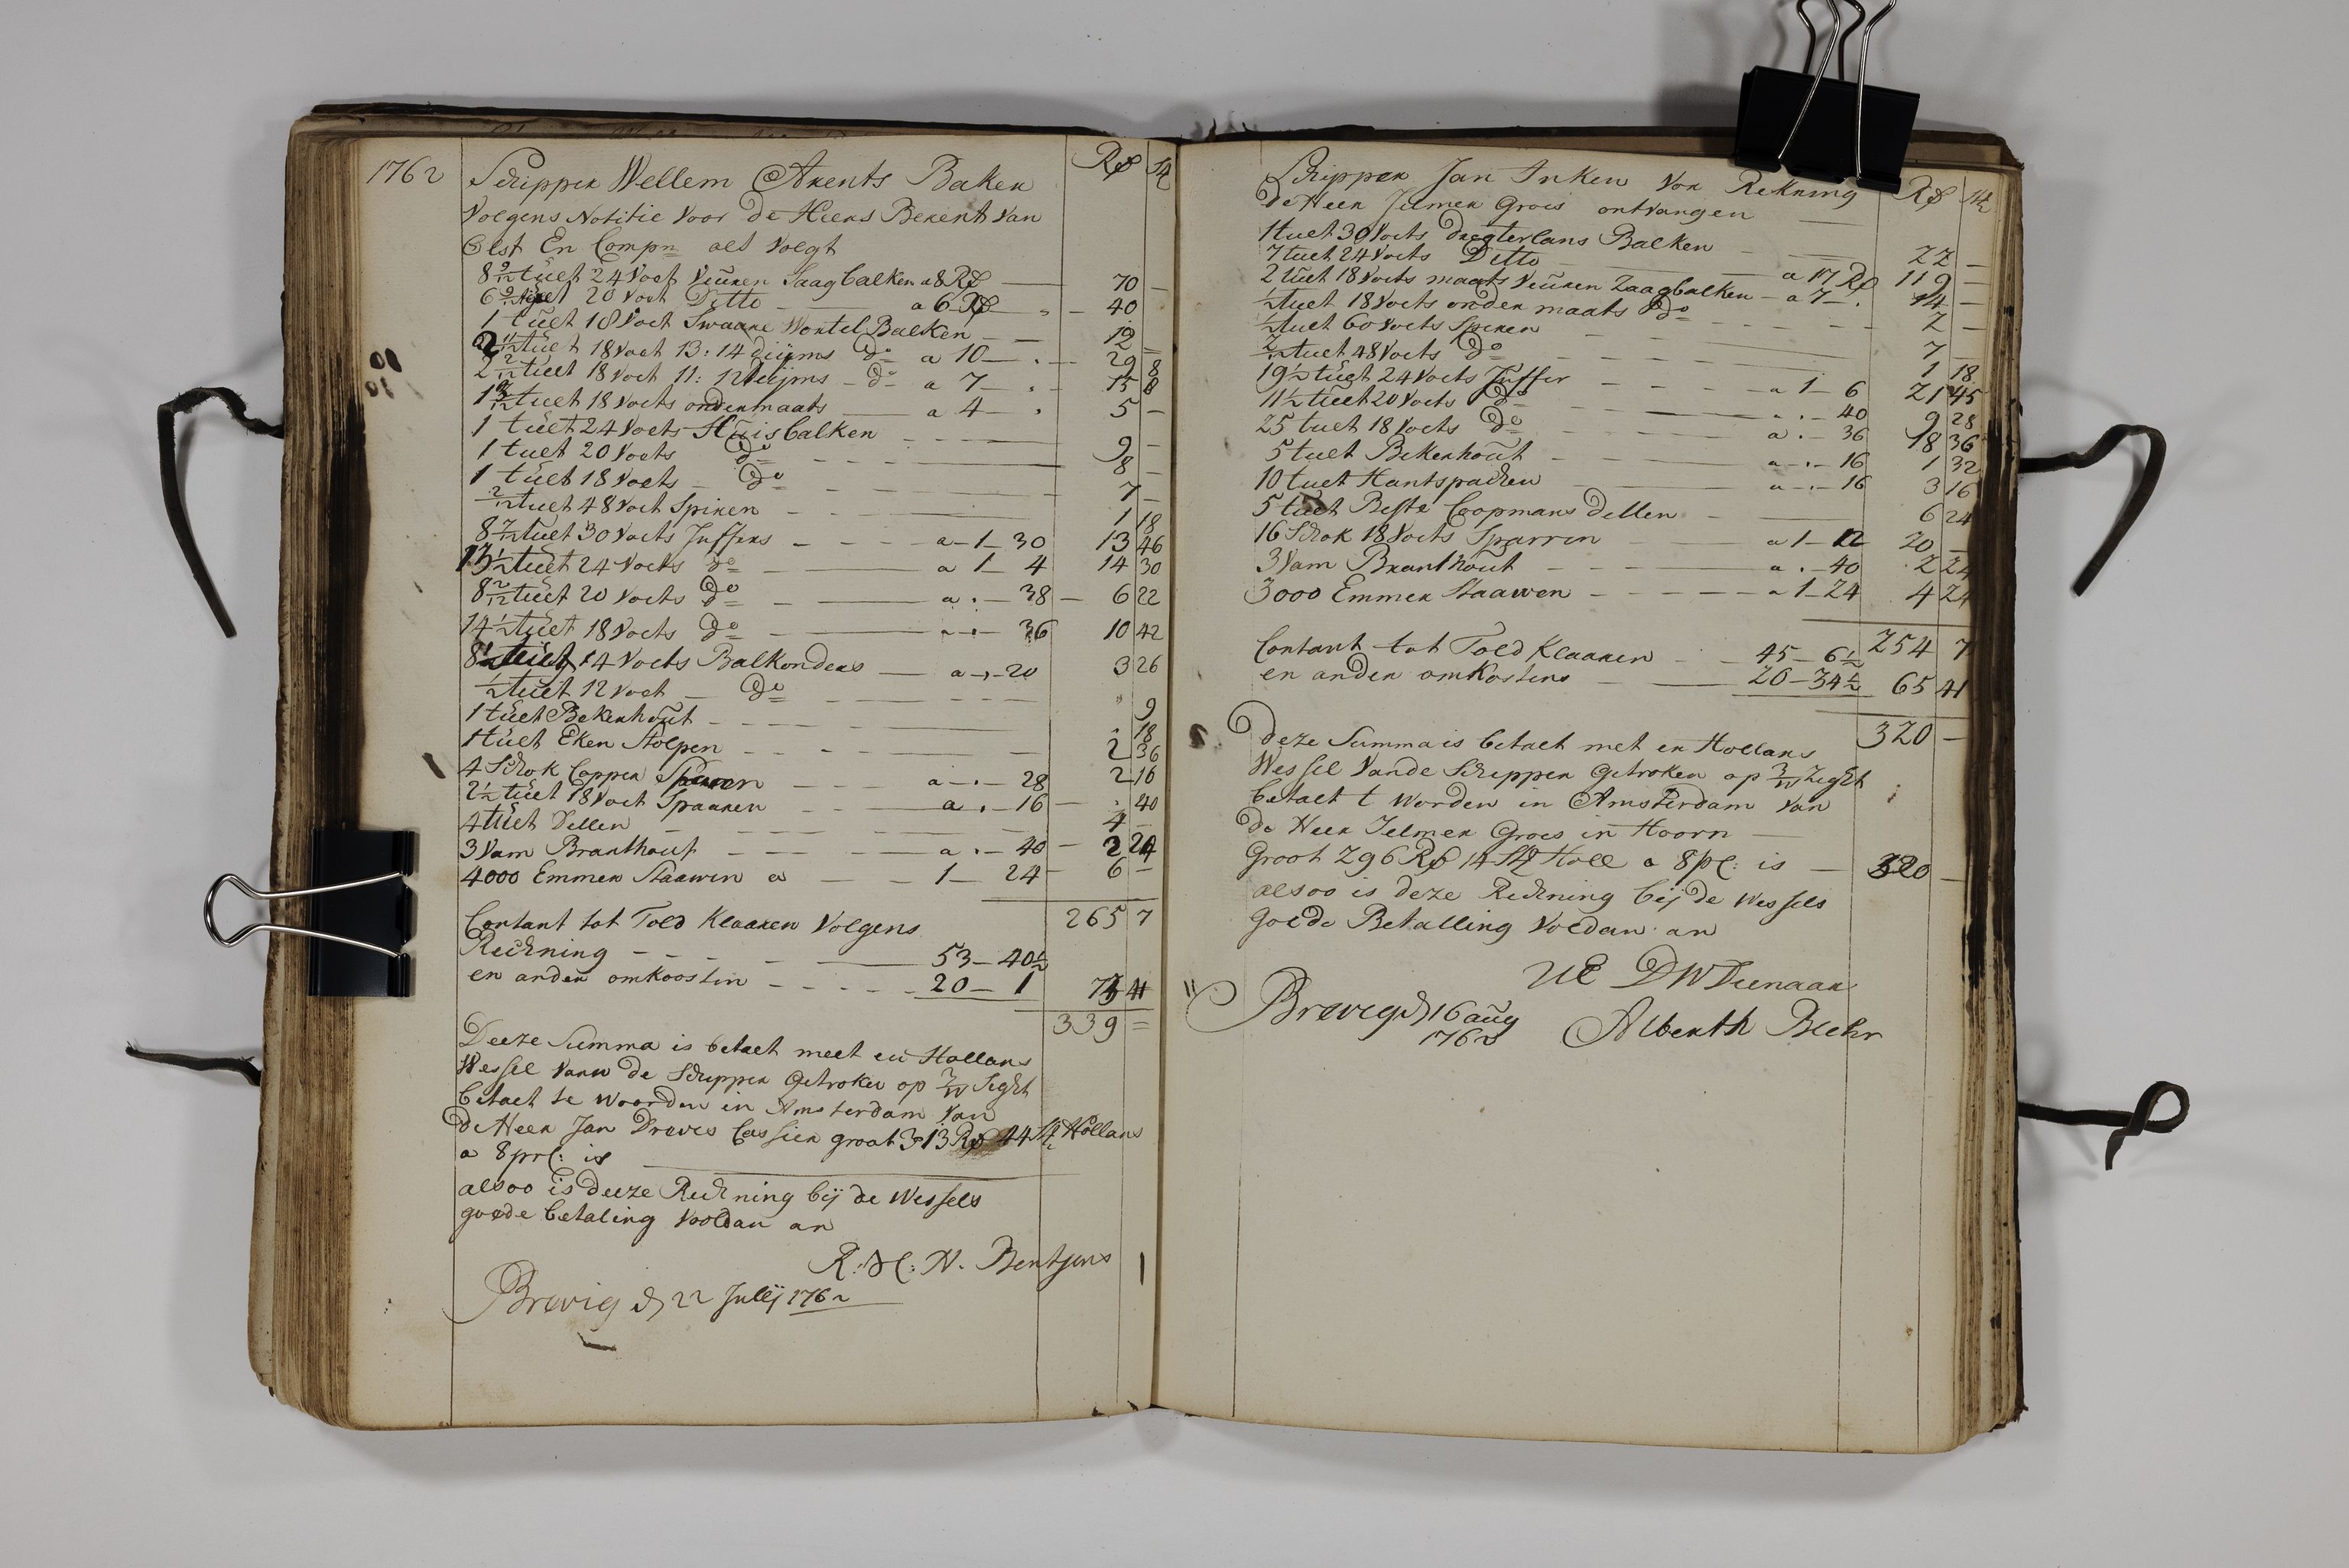 1762
Schipper Wellem Arents Baker Rd St
Volgens Notitie voor de Heers Berent van
Elst En Compn als volgt
8 9/12 tuelt 24 Voet Veuren Saagbalken a 8 Rd — 70 —
6 9/12 20 Voet Ditto — a 6 Rd — 40
1 tuelt 18 Voet Swaare Wortel Balken — 12
2 11/12 tuelt 18 Voet 13: 14 duijms do a 10 — 29 8
2 2/12 tuelt 18 Voet 11: 12 duijms — do a 7 — 15 8
1 3/12 tuelt 18 Voets ondermaats — a 4 — 5 —
1 tuelt 24 Voets Huisbalken — 9 —
1 tuelt 20 Voets do — 8 —
1 tuelt 18 Voets — do — 7 —
2/12 tuelt 48 Voet Spiren — 1 18
8 7/12 tuelt 30 Voets Juffers — a — 1 — 30 13 46
13 1/2 tuelt 24 Voets do — a 1 — 4 14 30
8 2/12 tuelt 20 Voets do — a . — 38 — 6 22
14 1/2 tuelt 18 Voets do — a . — 36 10 42
8 1/2 tuelt 14 Voets Balkonders — a . — 20 3 26
1/2 tuelt 12 Voet — do — 9
1 tuelt Bekenhout — . 18
1 tuelt Eken Stolpen — 2 36
4 Schok Copper — a — . — 28 2 16
2 1/2 tuelt 18 Voet Spaaren — a . — 16 — . 40
4 tuelt Dellen — 4 —
3 Vam Branthout — a . — 40 — 2 24
4000 Emmer Staawen a — 1 — 24 — 6 —
265 7
Contant tot Told Klaaren Volgens
Rechning — 53 — 40 1/2
en ander omkoosten — 20 — 1 73 41
339 =
Deeze Summa is betaelt meet en Hollans
Wessel vann de Schipper Getroken op Sicht
betaelt te woorden in Amsterdam van
de Heer Jan Droves Cassier groot 313 Rd 44 St Hollans
a 8 prC: is
alsoo is deeze Rechning bij de Wessels
goede betaling Vooldan an
R: H: N. Bentsens
Brevig d 22 Julij 1762
Schipper Jan Inken Vor Rekning Rd St
de Heer Jelmer Groes ontvangen
1 tuelt 30 Voets dregterlans Balken — 22 —
7 tuelt 24 Voets Ditto — a 17 Rd 119 —
2 tuelt 18 Voets maats Veuren Zaagbalken — a 7 — . 14 —
1/2 tuelt 18 Voets onder maats do — 2 —
1/2 tuelt 60 Voets Spiren — 7 —
2/12 tuelt 48 Voets do — 1 18
19 1/2 tuelt 24 Voets Juffer — a 1 — 6 21 45
11 1/2 tuelt 20 Voets do — a . — 40 9 28
25 tuelt 18 Voets do — a . — 36 18 36
5 tuelt Bekenhout — a — . — 16 1 32
10 tuelt Hantspacken — a — . — 16 3 16
5 tuelt Beste Coopmans dellen — 6 24
16 Schok 18 Voets Sparren — a 1 — 12 20 —
3 Vam Branthout — a . — 40 2 24
3000 Emmer Staawen — a 1 — 24 4 24
254 7
Contant tot Told Klaaren — 45 — 6 1/2
en ander omkostens — 20 — 34 1/2 65 41
320 —
Deze Summa is betaelt met en Hollans
Wessel Vande Schipper Getroken op Zicht
betaelt t worden in Amsterdam van
de Heer Jelmer Groes in Hoorn —
Groot 296 Rd 14 St Holl a 8 pC: is — 320 —
alsoo is deze Rechning bij de Wessels
Goede Betalling Voldan an
UE DW Dienaar
Brevig d 16 aug
1762
Alberth Blehr